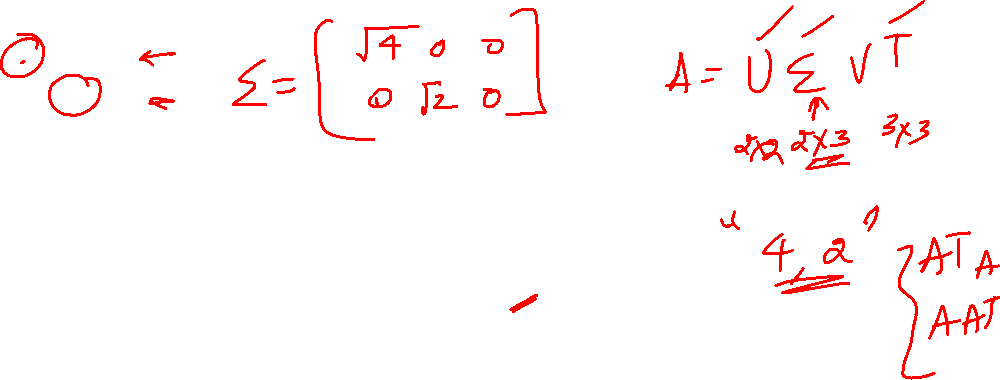 Σ = [ √4 0 0
0 √2 0 ]
A = U Σ V^T
2x2 2x3 3x3
" 4, 2 "
{ A^T A
A A^T